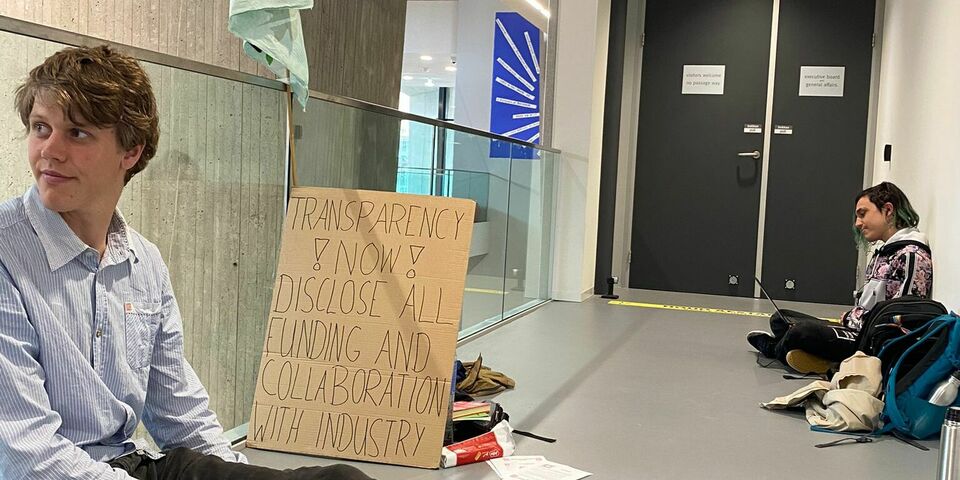 TRANSPARENCY
! NOW !
DISCLOSE ALL
FUNDING AND
COLLABORATION
WITH INDUSTRY
visitors welcome
no passage way.
executive board
general affairs.